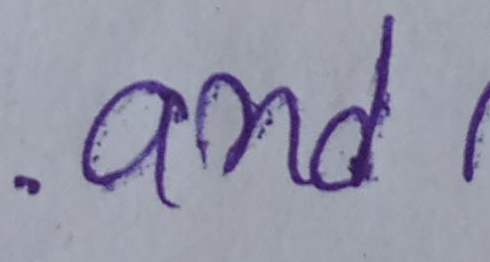 . and